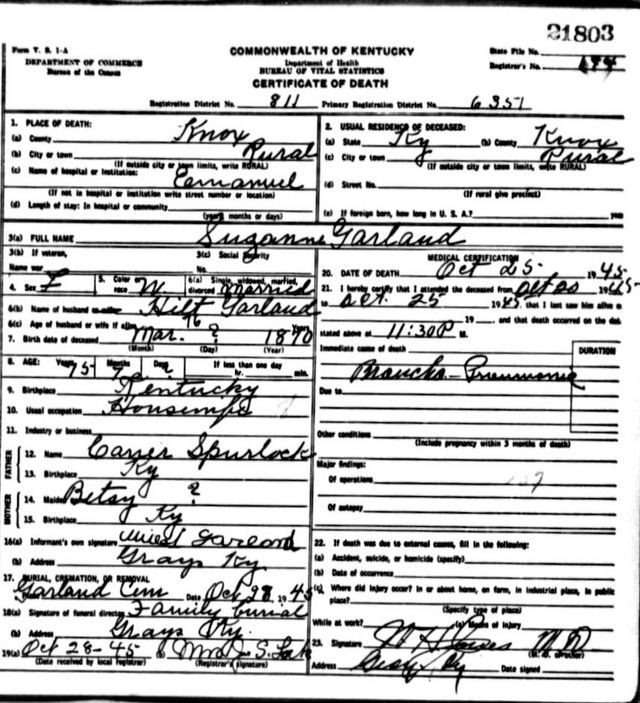 21803
Form V. S. 1-A
DEPARTMENT OF COMMERCE
Bureau of the Census
COMMONWEALTH OF KENTUCKY
Department of Health
BUREAU OF VITAL STATISTICS
CERTIFICATE OF DEATH
State File No.
Registrar's No.
Registration District No. 811 Primary Registration District No. 6351
1. PLACE OF DEATH:
(a) County Knox
(b) City or town Rural
(If outside city or town limits, write RURAL)
(c) Name of hospital or institution: Eemanuel
(If not in hospital or institution write street number or location)
(d) Length of stay: In hospital or community
(years months or days)
2. USUAL RESIDENCE OF DECEASED:
(a) State Ky (b) County Knox
(c) City or town Rural
(If outside city or town limits, write RURAL)
(d) Street No.
(If rural give precinct)
(e) If foreign born, how long in U. S. A.? years
3(a) FULL NAME Suzanne Garland
3(b) If veteran,
Name war
3(c) Social Security
No.
4. Sex F
5. Color or race W
6(a) Single, widowed, married, divorced Married
6(b) Name of husband or wife Hilt Garland
6(c) Age of husband or wife if alive 76 Years
7. Birth date of deceased Mar. ? 1870
(Month) (Day) (Year)
8. AGE: Years Months Days If less than one day
75 7 ? hr. min.
9. Birthplace Kentucky
10. Usual occupation Housewife
11. Industry or business
FATHER
12. Name Carrer Spurlock
13. Birthplace Ky
MOTHER
14. Maiden name Betsy ?
15. Birthplace Ky
16(a) Informant's own signature Garland
(b) Address Grays Ky
17. BURIAL, CREMATION, OR REMOVAL
Garland Cem Date Oct 28 1945
18(a) Signature of funeral director Family burial
(b) Address Grays Ky.
19(a) Oct 28-45 (b) Mrs S.
(Date received by local registrar) (Registrar's signature)
MEDICAL CERTIFICATION
20. DATE OF DEATH Oct 25 1945
21. I hereby certify that I attended the deceased from Oct 20 1945
to Oct. 25 1945 that I last saw him alive on
19 , and that death occurred on the date
stated above at 11:30P M.
Immediate cause of death
DURATION
Broncho-Pneumonia
Due to
Other conditions
(Include pregnancy within 3 months of death)
Major findings:
Of operations
107
Of autopsy
22. If death was due to external causes, fill in the following:
(a) Accident, suicide, or homicide (specify)
(b) Date of occurrence
(c) Where did injury occur? In or about home, on farm, in industrial place, in public
place?
(Specify type of place)
While at work? (e) Means of injury
23. Signature M.D.
Address Gray, Ky Date signed